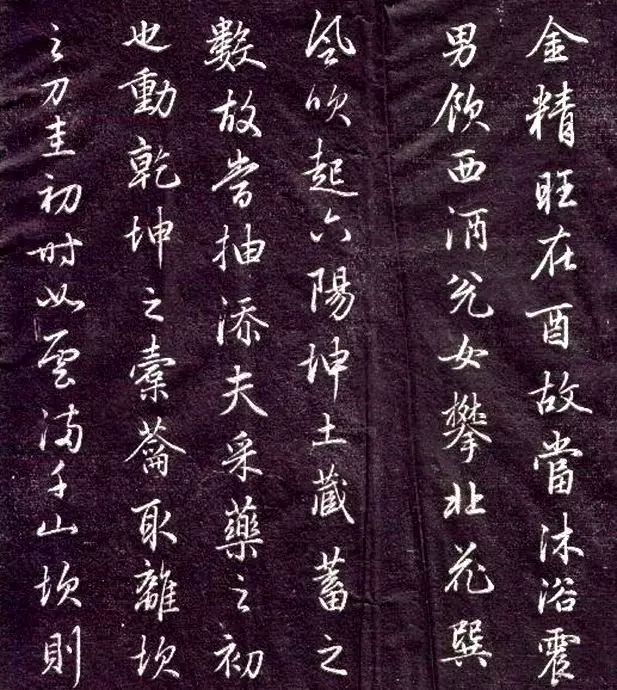 金精旺在酉故當沐浴震
男飲西酒兌女攀北花巽
風吹起六陽坤土藏蓄之
數故嘗抽添夫采藥之初
也動乾坤之橐蘥取離坎
之刀圭初时如雲满千山坎則